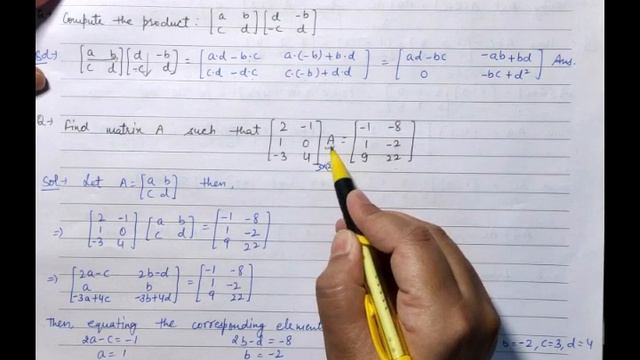 Compute the product: [a b; c d] [d -b; -c d]
Sol → [a b; c d] [d -b; -c d] = [a·d-b·c a·(-b)+b·d; c·d-d·c c·(-b)+d·d] = [ad-bc -ab+bd; 0 -bc+d²] Ans.
Q → Find matrix A such that [2 -1; 1 0; -3 4] A = [-1 -8; 1 -2; 9 22]
3×2
Sol → Let A = [a b; c d] then,
⇒ [2 -1; 1 0; -3 4] [a b; c d] = [-1 -8; 1 -2; 9 22]
⇒ [2a-c 2b-d; a b; -3a+4c -3b+4d] = [-1 -8; 1 -2; 9 22]
Then, equating the corresponding element
2a-c = -1 2b-d = -8 b=-2, c=3, d=4
a = 1 b = -2